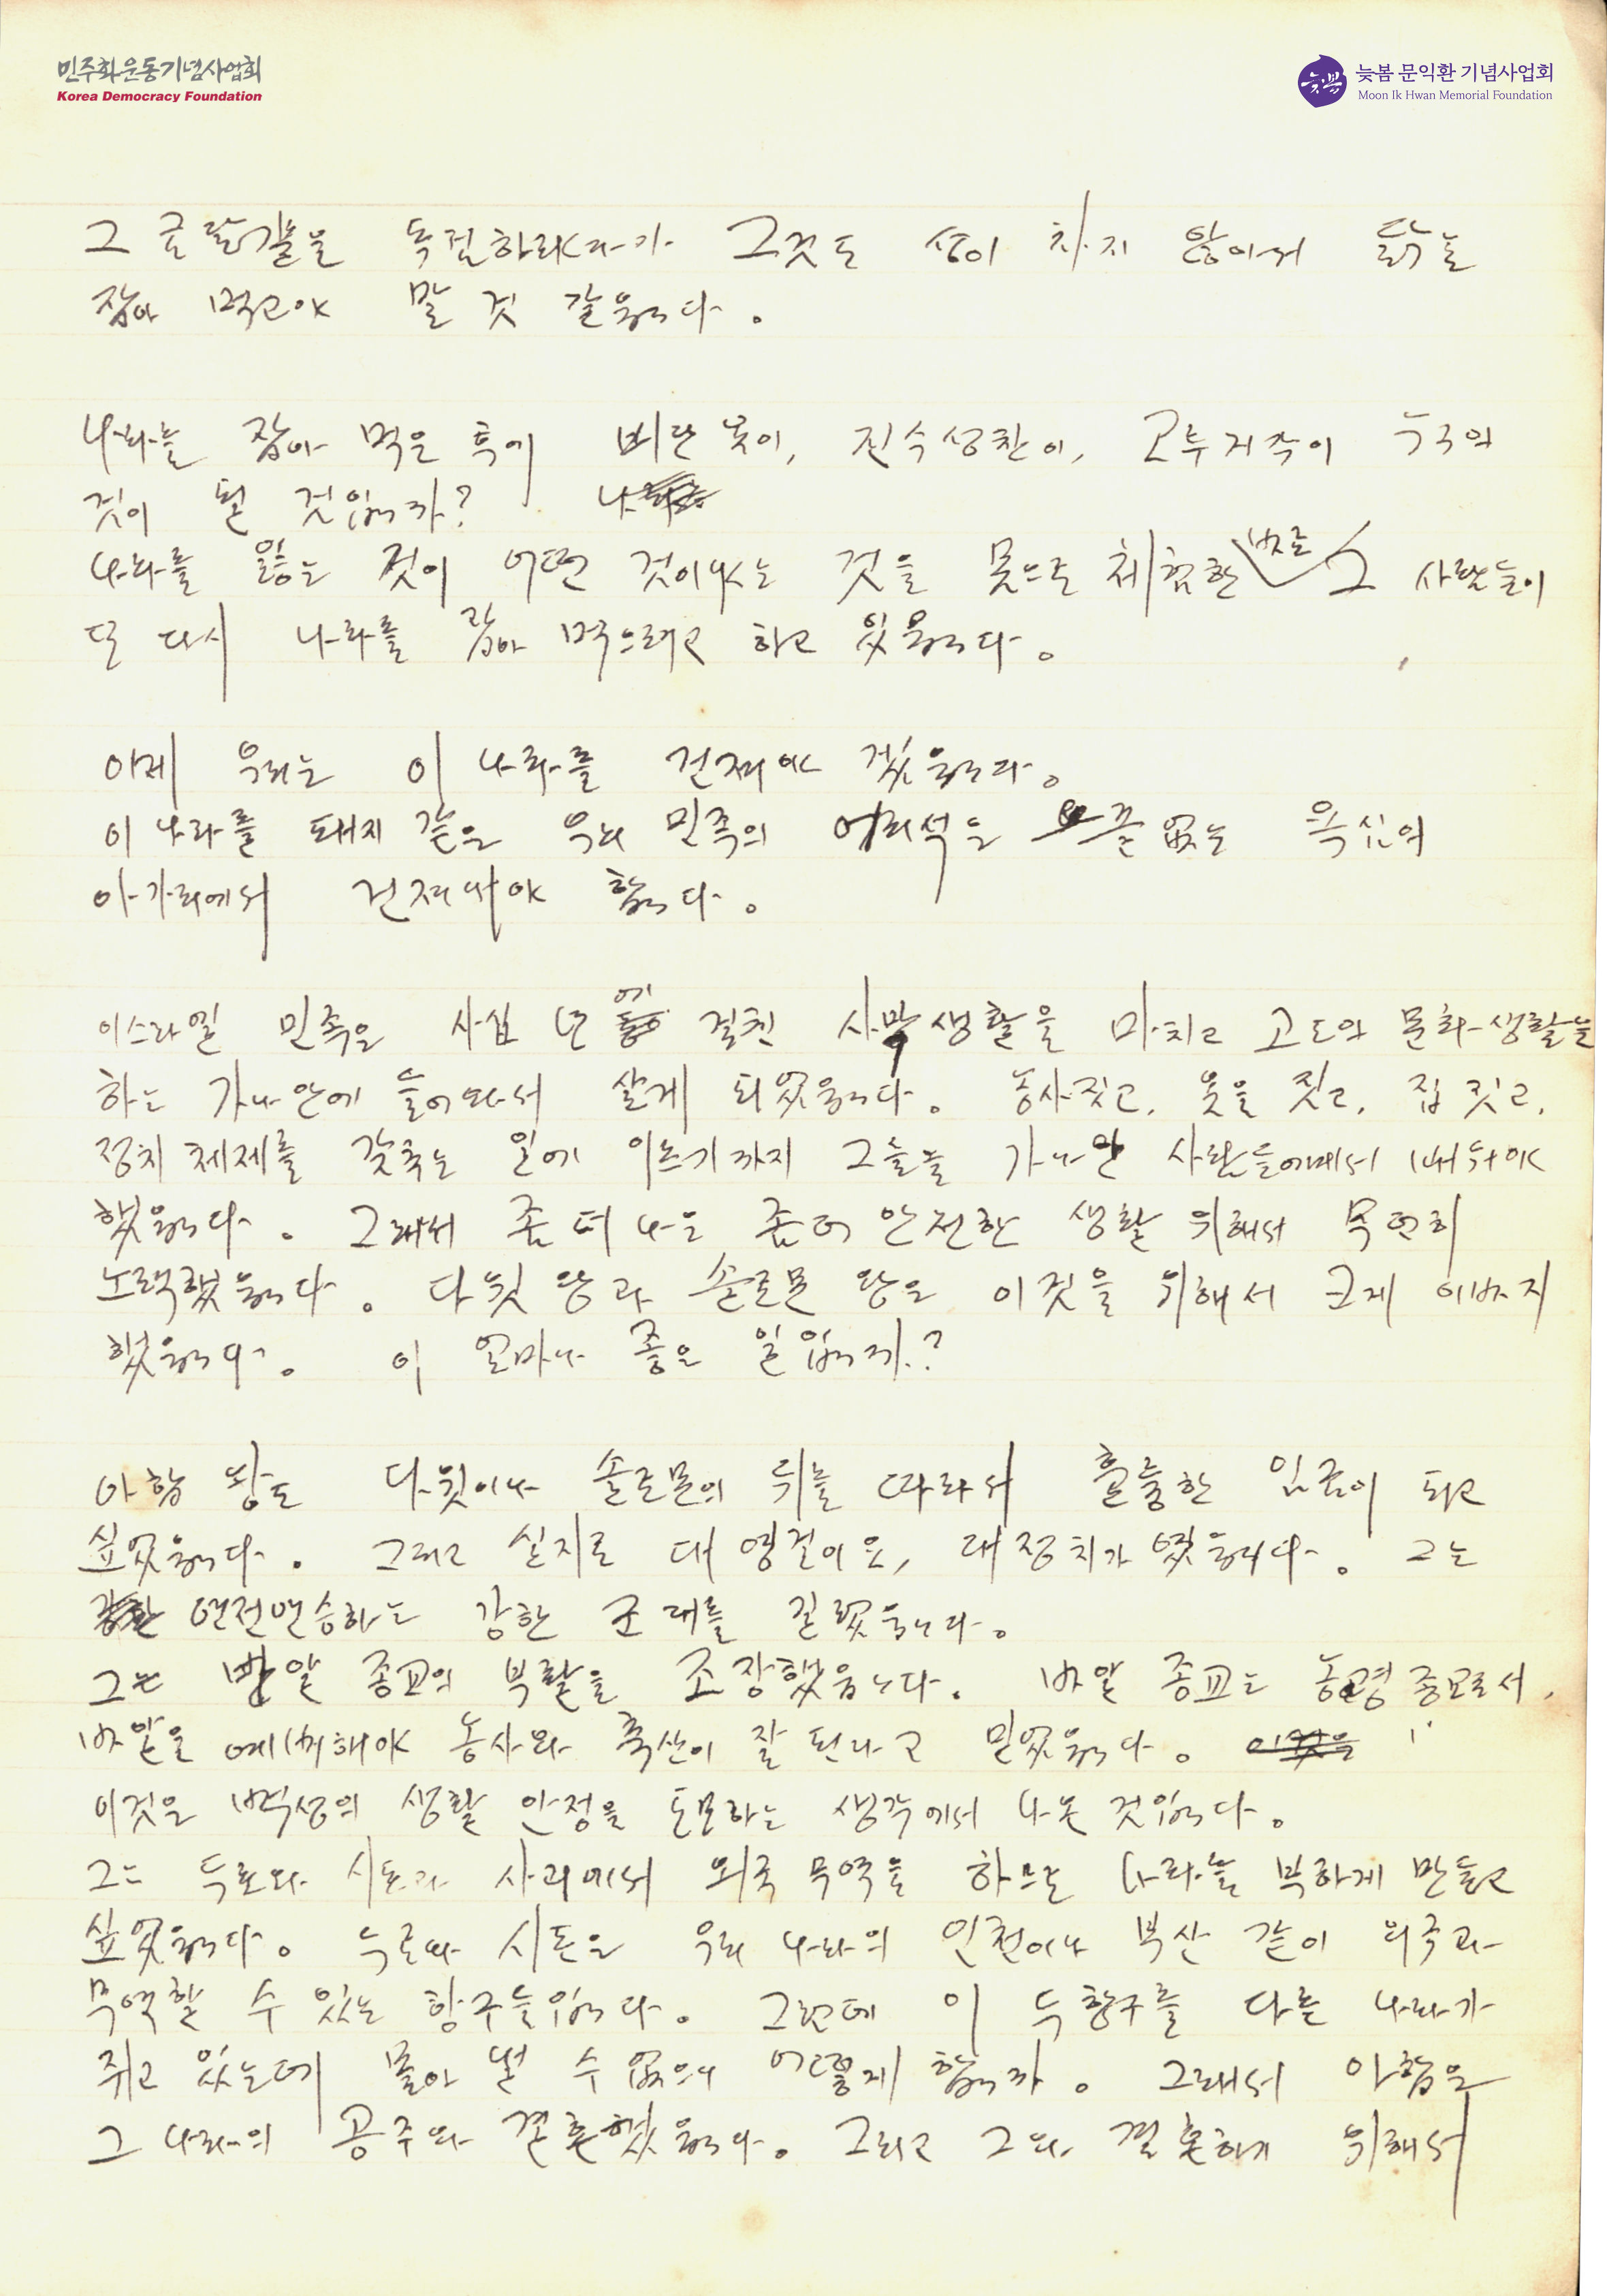 민주화운동기념사업회
Korea Democracy Foundation
늦봄 문익환 기념사업회
Moon Ik Hwan Memorial Foundation
그 금달걀을 독점하려다가 그것도 성이 차지 않아서 닭을
잡아 먹고야 말 것 같읍니다.
나라를 잡아 먹은 후에 비단 옷이, 진수성찬이, 고루거각이 누구의
것이 될 것입니까?
나라를 잃는 것이 어떤 것이냐는 것을 몸으로 체험한 바로 그 사람들이
또 다시 나라를 잡아 먹으려고 하고 있읍니다.
이제 우리는 이 나라를 건져야 겠읍니다.
이 나라를 돼지 같은 우리 민족의 어리석은 끝없는 욕심의
아가리에서 건져내야 합니다.
이스라엘 민족은 사십 년에 걸친 사막생활을 마치고 고도의 문화생활을
하는 가나안에 들어와서 살게 되었읍니다. 농사짓고, 옷을 짓고, 집 짓고,
정치 체제를 갖추는 일에 이르기까지 그들은 가나안 사람들에게서 배워야
했읍니다. 그래서 좀 더 나은 좀더 안전한 생활 위해서 무던히
노력했읍니다. 다윗 왕과 솔로몬 왕은 이것을 위해서 크게 이바지
했읍니다. 이 얼마나 좋은 일입니까?
아합 왕도 다윗이나 솔로몬의 뒤를 따라서 훌륭한 임금이 되고
싶었읍니다. 그리고 실지로 대 영걸이요, 대 정치가였읍니다. 그는
연전연승하는 강한 군대를 길렀읍니다.
그는 바알 종교의 부활을 조장했읍니다. 바알 종교는 농경 종교로서,
바알을 예배해야 농사와 축산이 잘 된다고 믿었읍니다.
이것은 백성의 생활 안정을 도모하는 생각에서 나온 것입니다.
그는 두로와 시돈과 사귀어서 외국 무역을 하므로 나라를 부하게 만들고
싶었읍니다. 두로와 시돈은 우리 나라의 인천이나 부산 같이 외국과
무역할 수 있는 항구들입니다. 그런데 이 두 항구를 다른 나라가
쥐고 있는데 뺏을 수 없으니 어떻게 합니까. 그래서 아합은
그 나라의 공주와 결혼했읍니다. 그리고 그와 결혼하기 위해서